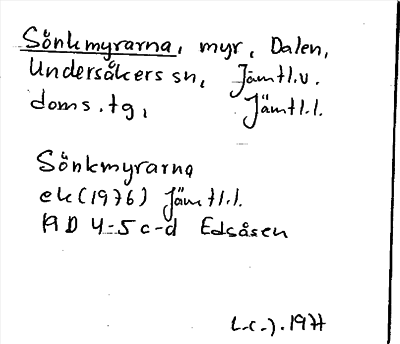 Sönkmyrarna, myr, Dalen,
Undersåkers sn, Jämtl.v.
doms.tg, Jämtl.l.
Sönkmyrarna
ek (1976) Jämtl.l.
19D 4-5 c-d Edsåsen
L-C-J. 1977